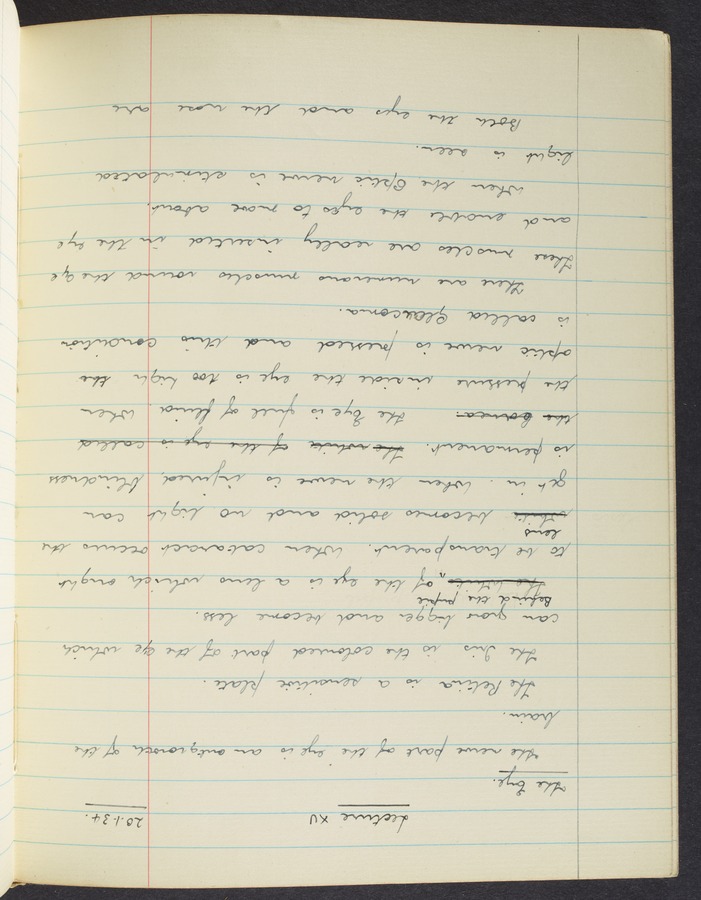 Lecture XV 20.1.34.
The Eye.
The nerve part of the eye is an outgrowth of the
brain.
The Retina is a sensitive plate.
The Iris is the coloured part of the eye which
can grow bigger and become less.
Behind the pupil
the white of the eye is a lens which ought
to be transparent. When cataract occurs the
lens
white becomes solid and no light can
get in. When the nerve is injured blindness
is permanent. The white of the eye is called
the cornea. The Eye is full of fluid. When
the pressure inside the eye is too high the
optic nerve is pressed and this condition
is called Glaucoma.
There are numerous muscles round the eye
These muscles are really inserted in the eye
and enable the eyes to move about.
When the Optic nerve is stimulated
light is seen.
Both the eyes and the nose are